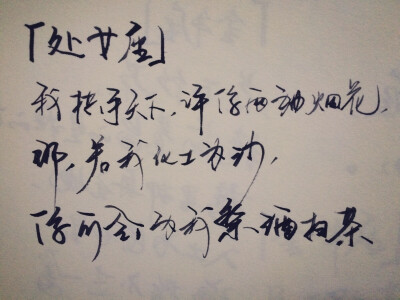 「处女座」
我拱手天下,许你两袖烟花,
那,若我化土为沙,
你可会为我祭酒扫茶